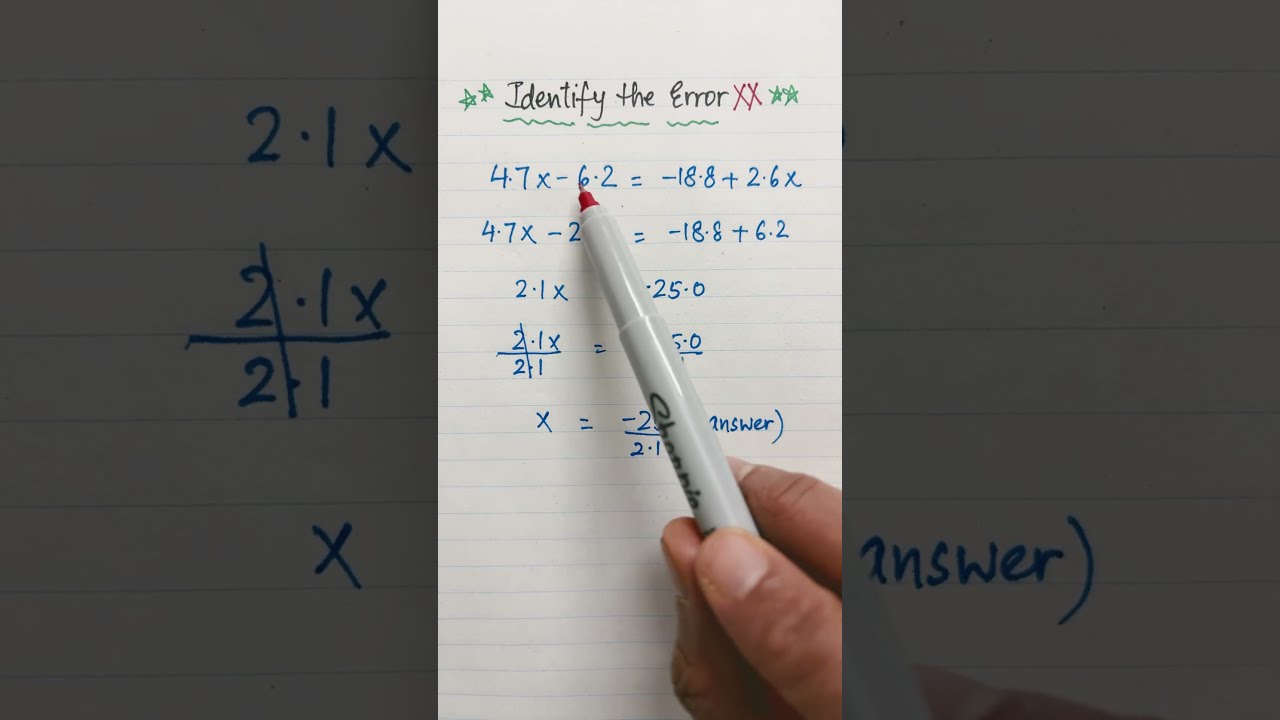 ** Identify the Error XX **
4.7x - 6.2 = -18.8 + 2.6x
4.7x - 2 = -18.8 + 6.2
2.1x 25.0
2.1x/2.1 = 5.0
x = -2 /2.1 answer)
Sharpie